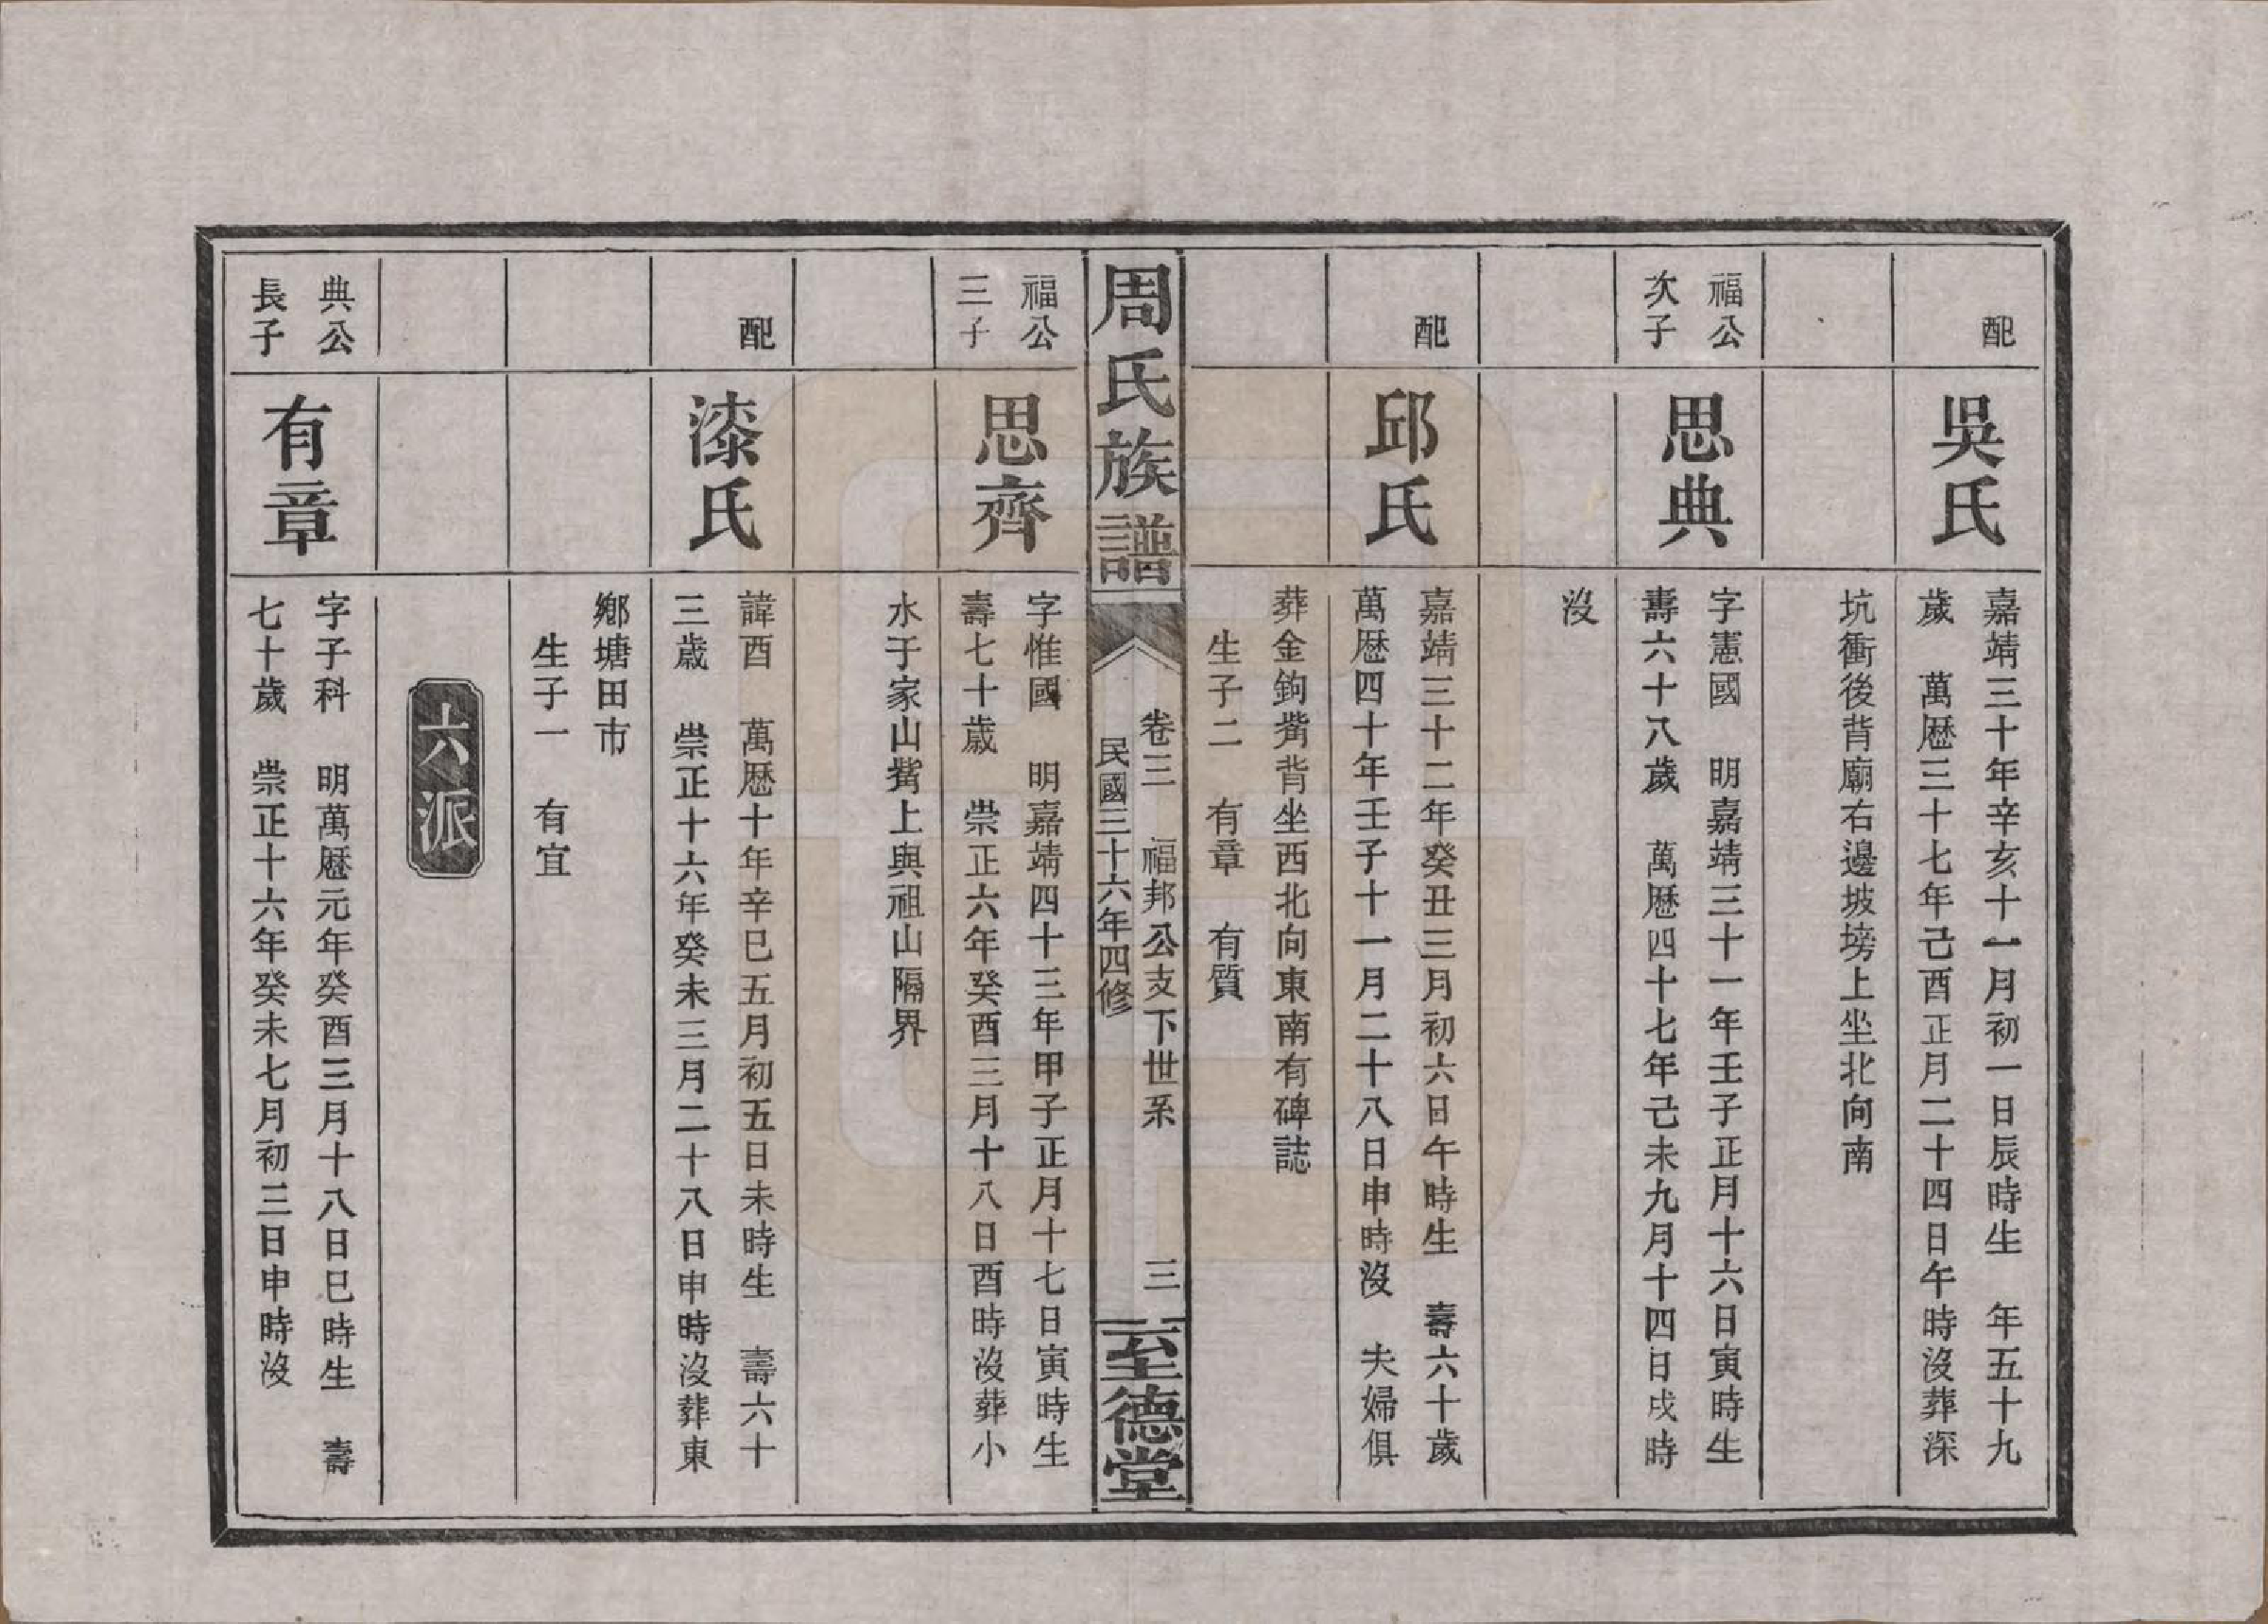 配
吳氏
嘉靖三十年辛亥十一月初一日辰時生　年五十九
歲　萬厯三十七年己酉正月二十四日午時沒葬深
坑衝後背廟右邊坡塝上坐北向南
福公
次子
思典
字憲國　明嘉靖三十一年壬子正月十六日寅時生
壽六十八歲　萬厯四十七年己未九月十四日戌時
沒
配
邱氏
嘉靖三十二年癸丑三月初六日午時生　壽六十歲
萬厯四十年壬子十一月二十八日申時沒　夫婦俱
葬金鉤觜背坐西北向東南有碑誌
生子二　有章　有質
周氏族譜
卷三　福邦公支下世系　三
民國三十六年四修
至德堂
福公
三子
思齊
字惟國　明嘉靖四十三年甲子正月十七日寅時生
壽七十歲　崇正六年癸酉三月十八日酉時沒葬小
水于家山觜上與祖山隔界
配
漆氏
諱酉　萬厯十年辛巳五月初五日未時生　壽六十
三歲　崇正十六年癸未三月二十八日申時沒葬東
鄉塘田市
生子一　有宜
六派
典公
長子
有章
字子科　明萬厯元年癸酉三月十八日巳時生　壽
七十歲　崇正十六年癸未七月初三日申時沒